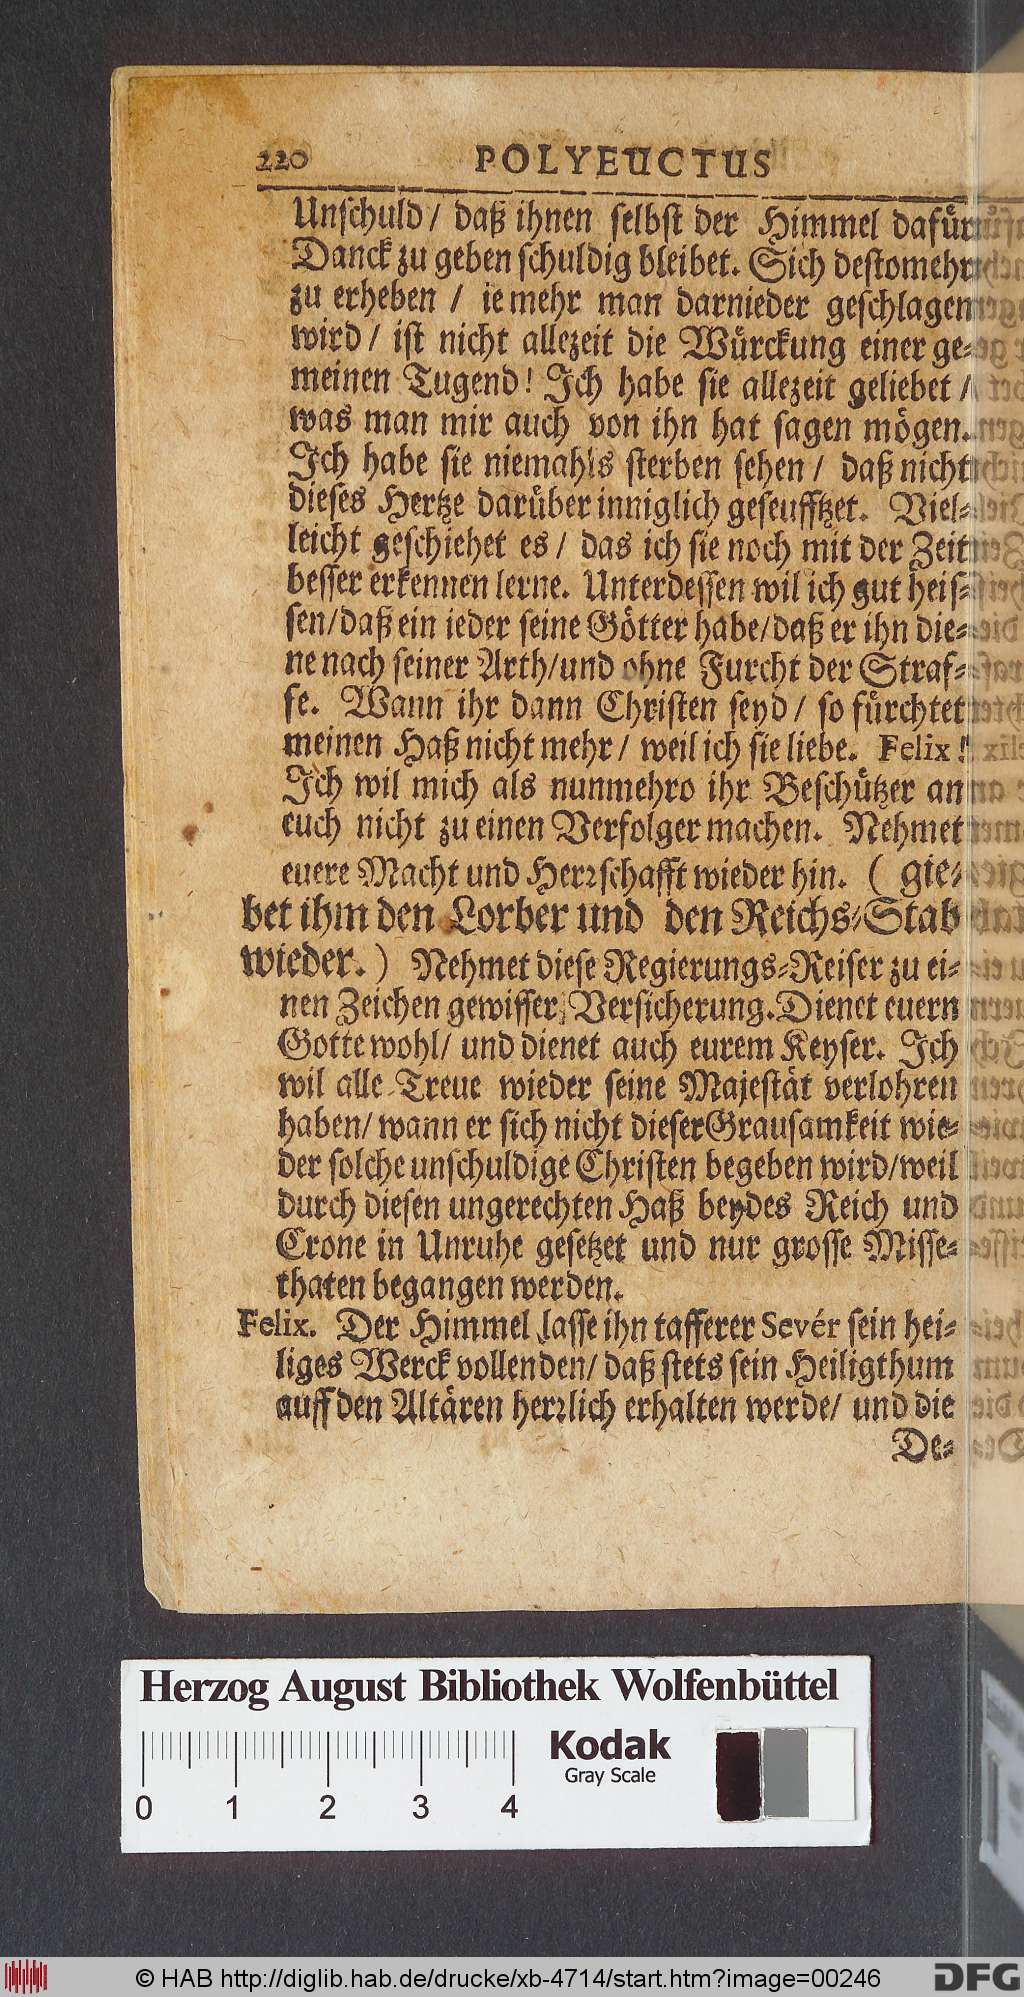 220 POLYEUCTUS
Unschuld / daß ihnen selbst der Himmel dafür
Danck zu geben schuldig bleibet. Sich destomehr
zu erheben / ie mehr man darnieder geschlagen
wird / ist nicht allezeit die Würckung einer ge-
meinen Tugend! Ich habe sie allezeit geliebet /
was man mir auch von ihn hat sagen mögen.
Ich habe sie niemahls sterben sehen / daß nicht
dieses Hertze darüber inniglich geseufftzet. Viel-
leicht geschiehet es / das ich sie noch mit der Zeit
besser erkennen lerne. Unterdessen wil ich gut heis-
sen/daß ein ieder seine Götter habe/daß er ihn die-
ne nach seiner Arth/und ohne Furcht der Straf-
fe. Wann ihr dann Christen seyd / so fürchtet
meinen Haß nicht mehr / weil ich sie liebe. Felix!
Ich wil mich als nunmehro ihr Beschützer an
euch nicht zu einen Verfolger machen. Nehmet
euere Macht und Herrschafft wieder hin. ( gie-
bet ihm den Lorber und den Reichs-Stab
wieder. ) Nehmet diese Regierungs-Reiser zu ei-
nen Zeichen gewisser Versicherung. Dienet euern
Gotte wohl/ und dienet auch eurem Keyser. Ich
wil alle Treue wieder seine Majestät verlohren
haben/ wann er sich nicht dieser Grausamkeit wie-
der solche unschuldige Christen begeben wird/weil
durch diesen ungerechten Haß beydes Reich und
Crone in Unruhe gesetzet und nur grosse Misse-
thaten begangen werden.
Felix. Der Himmel lasse ihn tafferer Sevér sein hei-
liges Werck vollenden/ daß stets sein Heiligthum
auff den Altären herrlich erhalten werde/ und die
De-
Herzog August Bibliothek Wolfenbüttel
0 1 2 3 4
Kodak
Gray Scale
© HAB http://diglib.hab.de/drucke/xb-4714/start.htm?image=00246
DFG